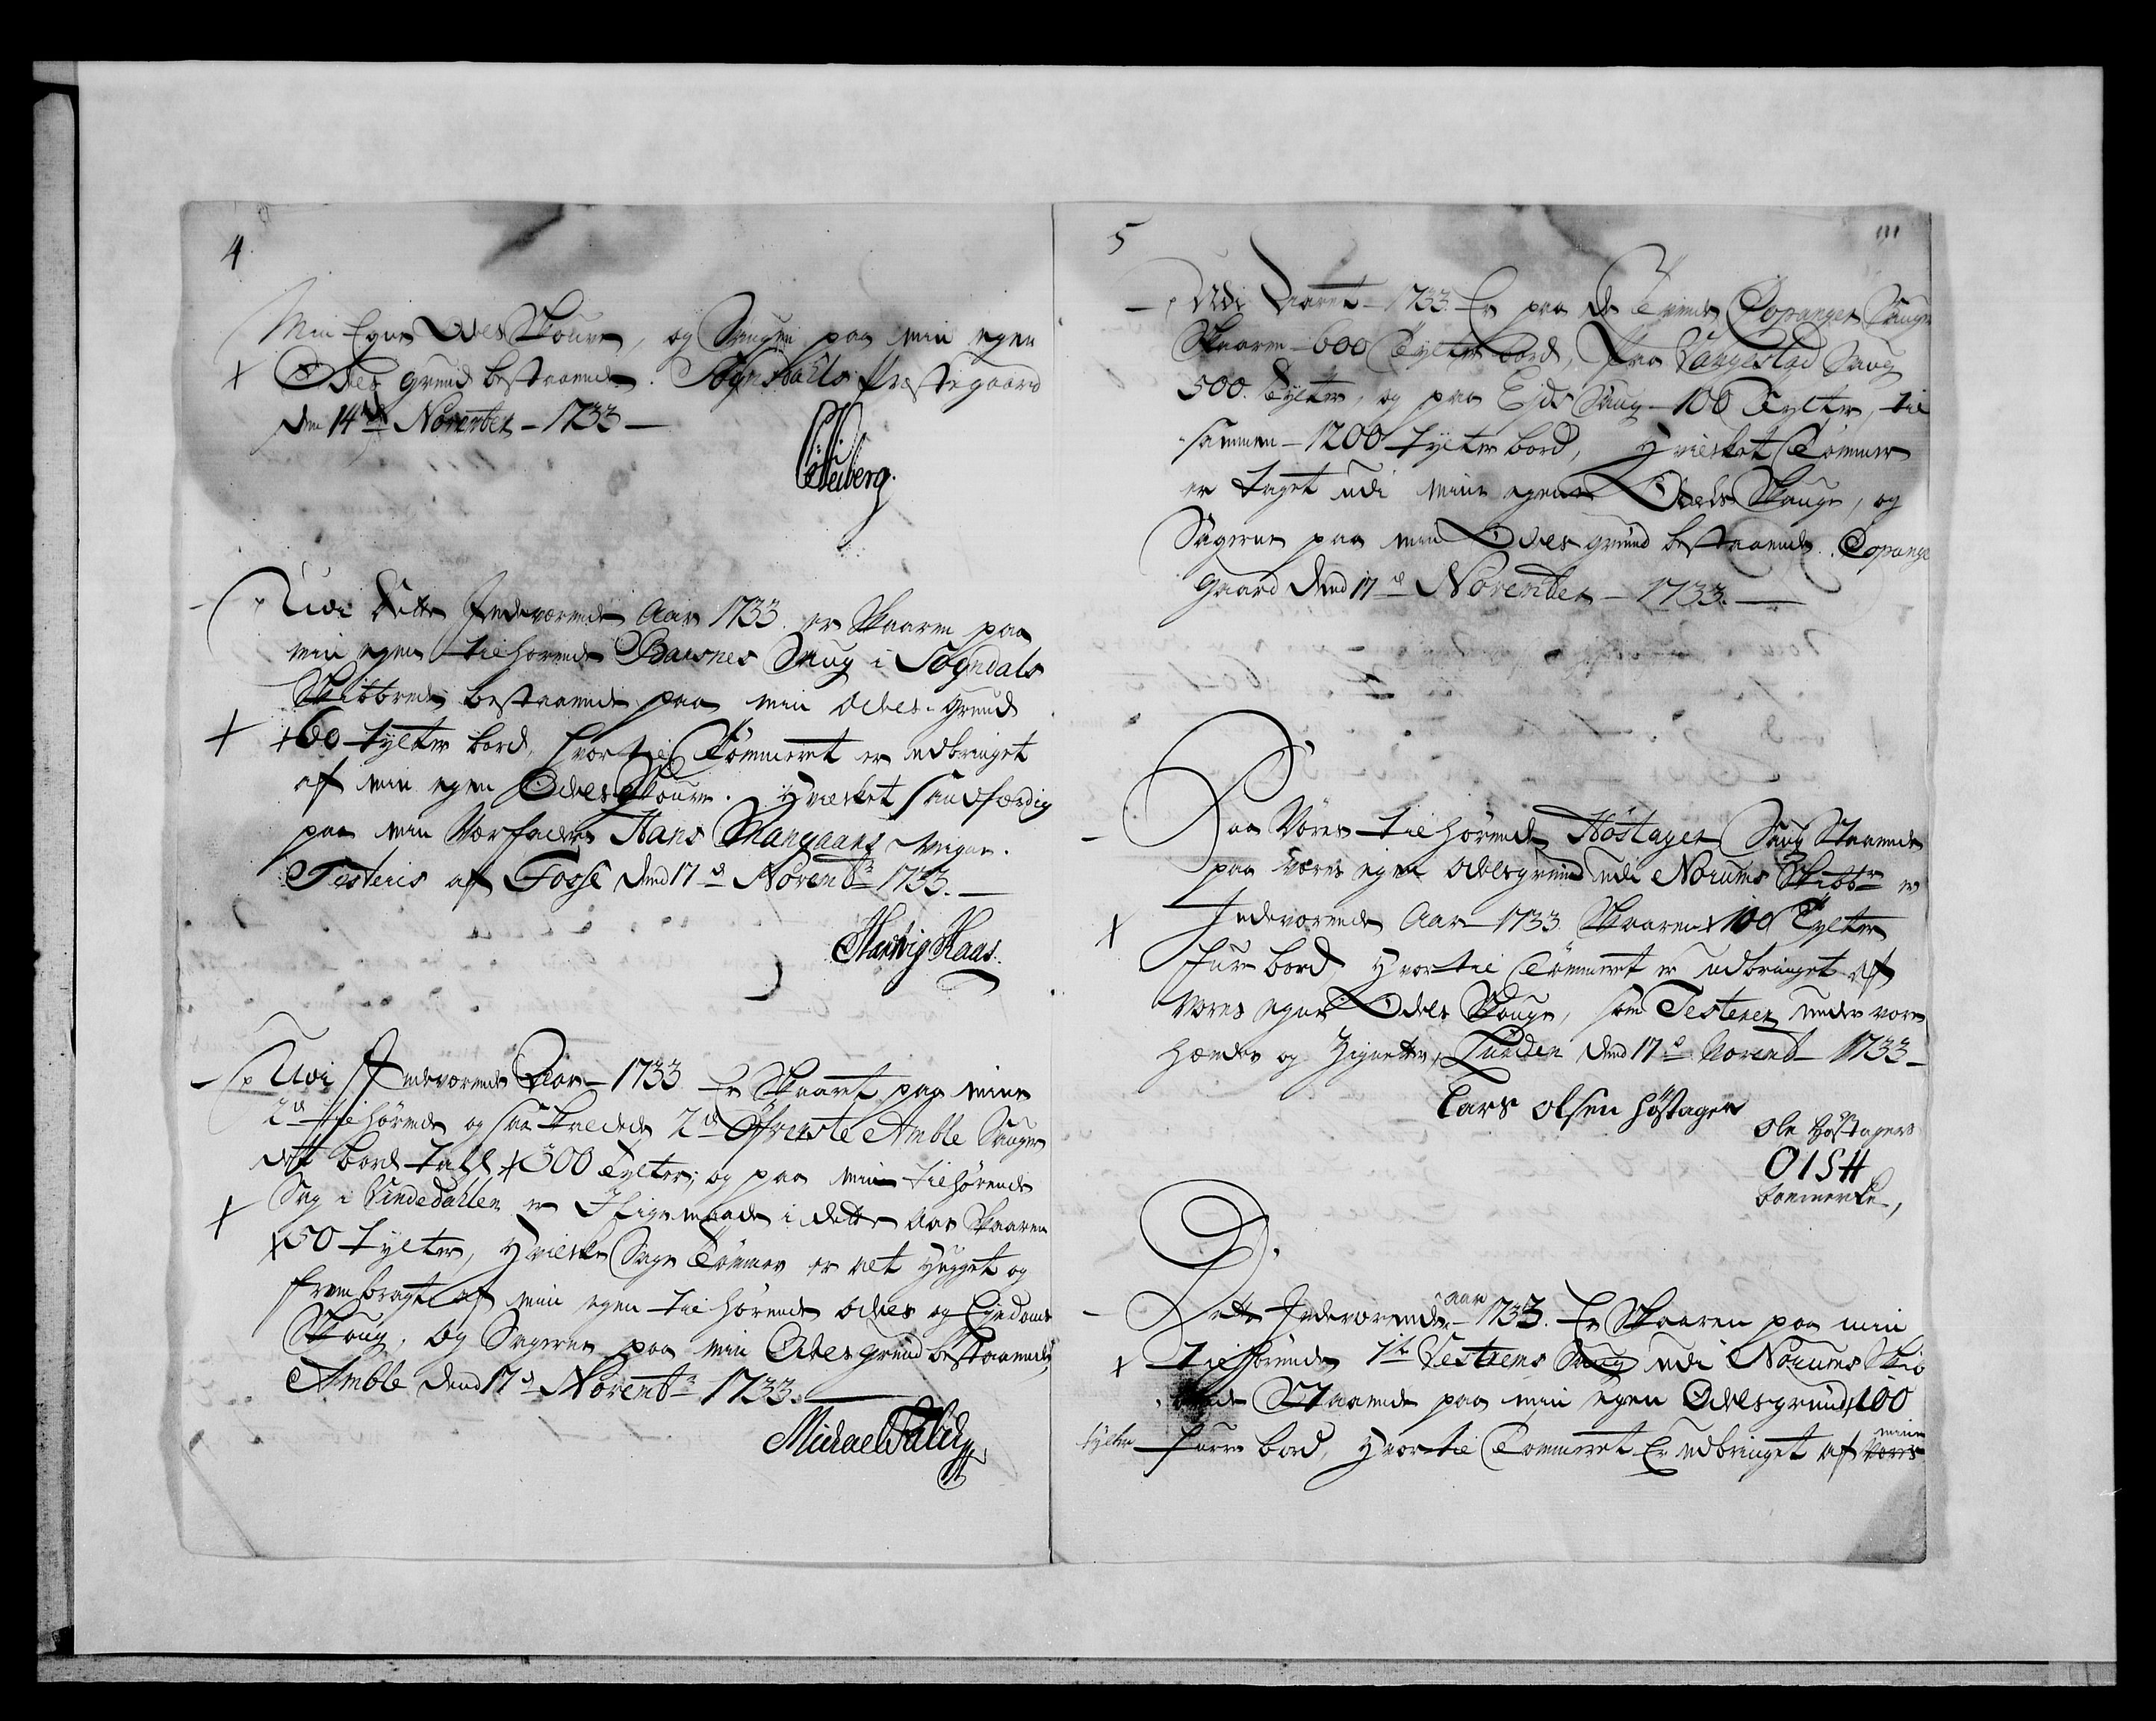 4
Min Egne Odels Skouve, og Saugen paa min egen
Odels grund bestaaende. Sogndahls Præstegaard
den 14de November 1733
Udi dette Indeværende Aar 1733 er Skaaren paa
min egen tilhørende Barsnes Saug i Sogndals
Skibbrede bestaaende paa min Odels grund
+60 Tylter bord, hvortil Tømmeret er udbringet
af min egen Odels Skouve. Hvilket sandfærdig
paa min Værfaders Hans vegne.
Testeris af Fosse dend 17de Novembr 1733.
Hartvig Kaas.
Udi Indeværende Aar 1733 Er Skaaret paa mine
2de tilhørende og saa kaldede 2de Øfverste Amble Sauger
dett bord tall +300 Tylter, og paa min tilhørende
Sag i Vindedahlen er Iligemaade i dette Aar Skaaren
+50 Tylter, Hvilke Sage Tømmer er alt Hugget og
frembragt af min egen tilhørende Odels og Eyendoms
Skoug, og Sagerne paa min Odels grund bestaaende,
Amble dend 17de Novembr 1733.
5
Udi Aaret 1733 Er paa de tvende Copanger Sauger
Skaaren 600 Tylter bord, Paa Vangestad Saug
500 Tylter, og paa Eids Saug 100 Tylter, til
sammen 1200 Tylter bord, Hvilket Tømmer
er taget udi mine egene Odels Skauge, og
Sagerne paa min Odels grund bestaaende. Copange
Gaard dend 17de November 1733.
Paa Vores tilhørende Høstager Saug Staaende
paa vores egen odelsgrund udi Norums Skibbr er
Indeværende Aar 1733 Skaaren +100 Tylter
Furre bord, Hvortil Tømmeret er udbringet af
Vores egne Odels Skouge, som Testerer under vore
Hænder og Zignetter, Lunden dend 17de Novemb 1733
Lars Olsen Høstager
Ole Høstagers
OISH
boemerke,
Dette Indeværende aar 1733. Er Skaaren paa min
tilhørende Vestrems Saug udi Norums Skib
Staaende paa min egen Odelsgrund, +100
tylter Furre bord, Hvortil Tømmeret Er udbringet af mine
vores